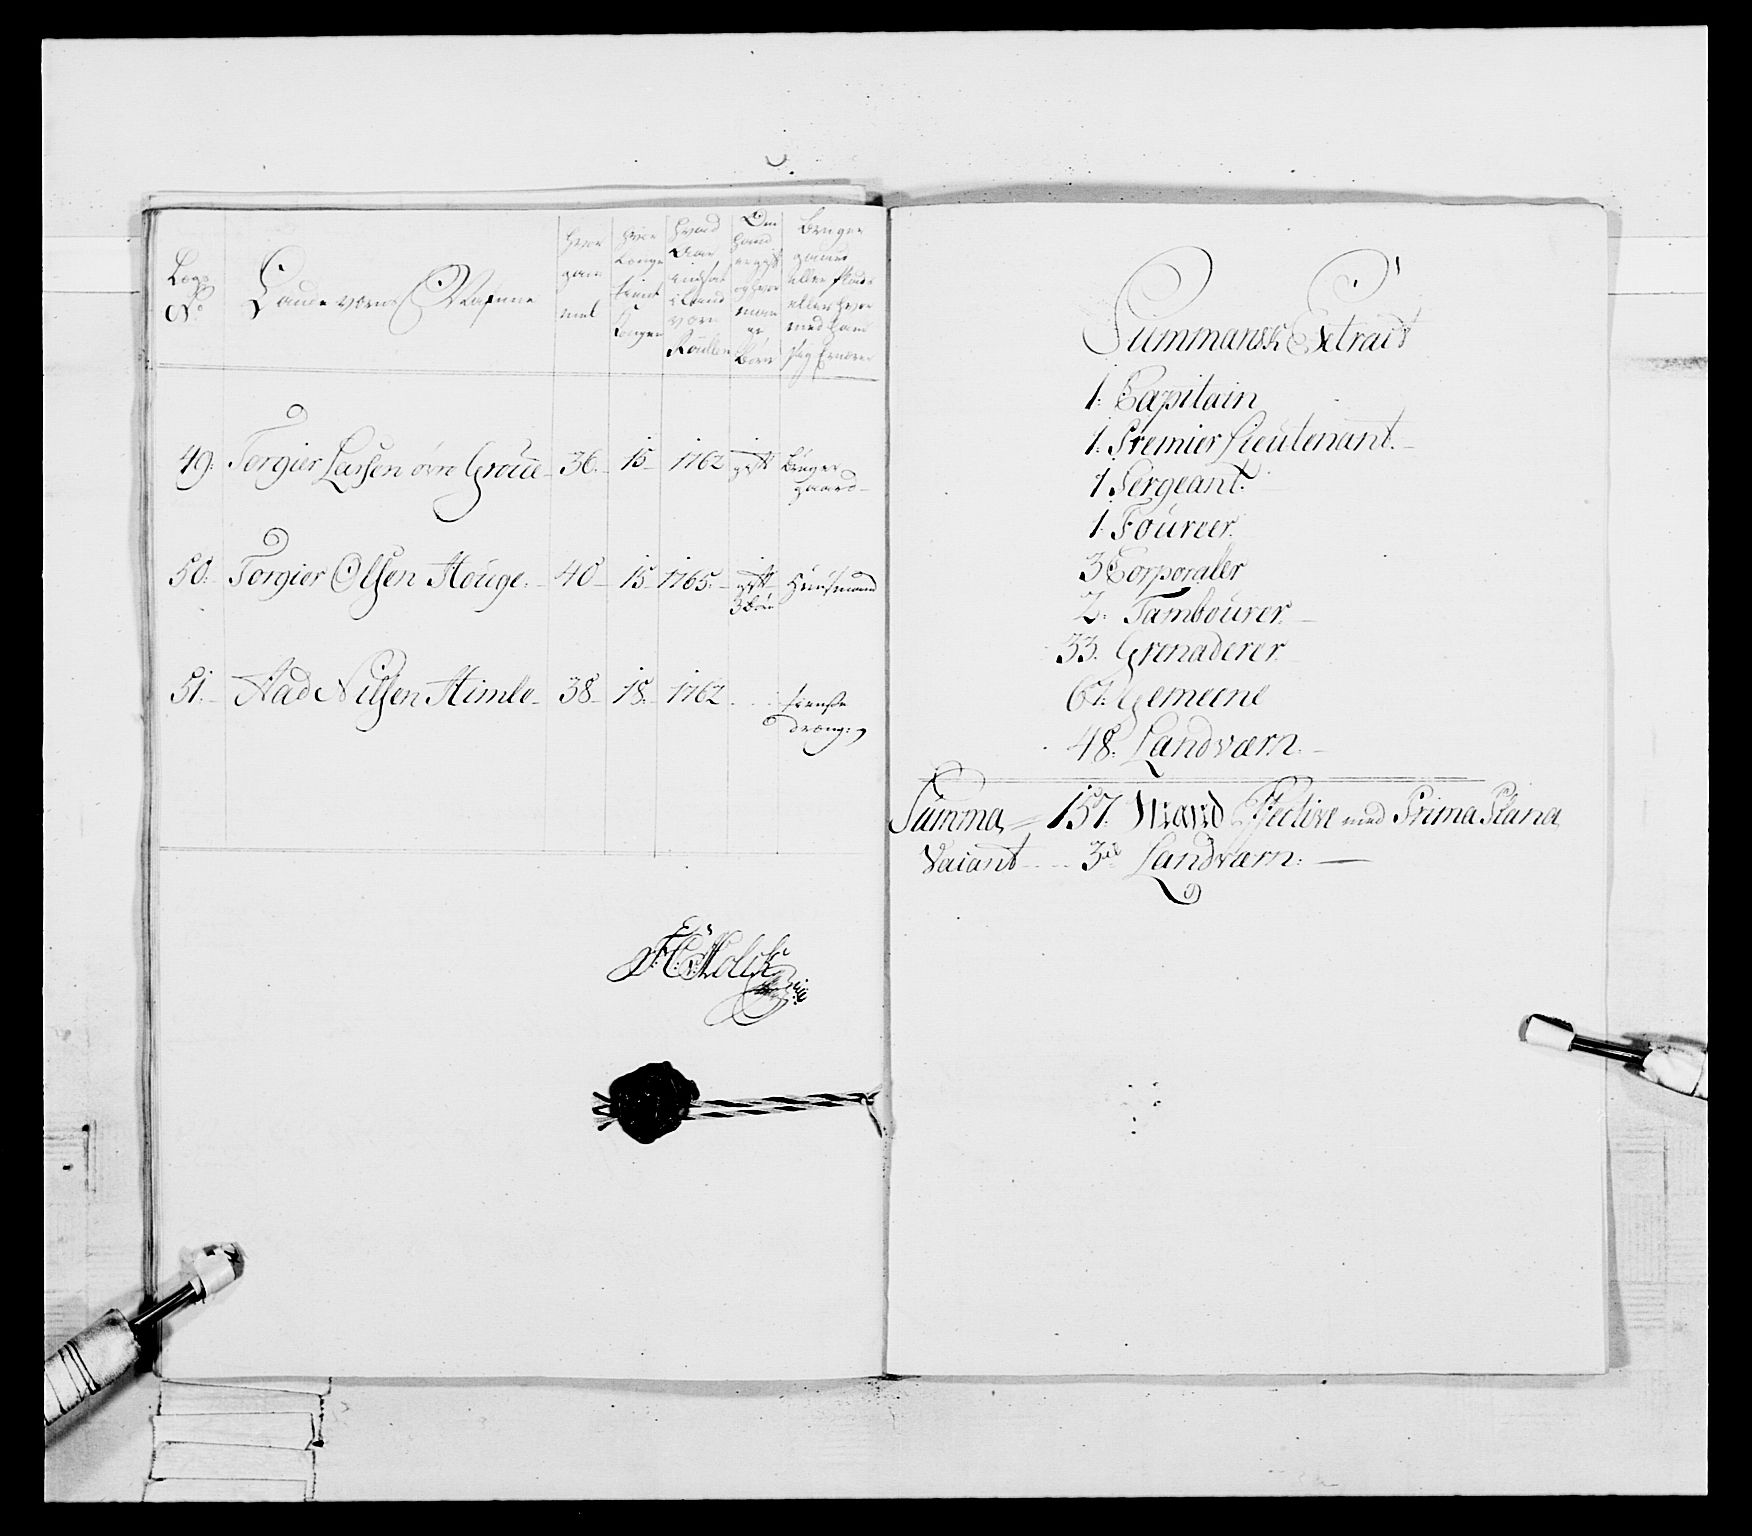 Legs No
Landeværns Nafne
Hvor gammel
Hvor længe tient Kongen
Hvad Aar indsat i Land værn Roullen
Om hand er gift og hvor mange Børn
Bruger gaard eller plads eller hvor med hand sig Ernærer
49. Torgier Larsen øvre Groue 36. 15 1762 gift Bruger gaard
50. Torgier Olsen Houge. 40 15 1765. gift 3 børn Huusmand
51. Aad Nilsen Himle 38 18. 1762 tieniste dreng.
Summarisk Extract
1. Capitain
1. Premier Lieutenant.
1 Sergeant.
1. Foureer.
3 Corporaler
2. Tambourer.
33. Grenaderer.
67. Gemeene
48. Landværn.
Summa = 157. Mand Effective med Prima Plana
Vacant 3de Landværn.